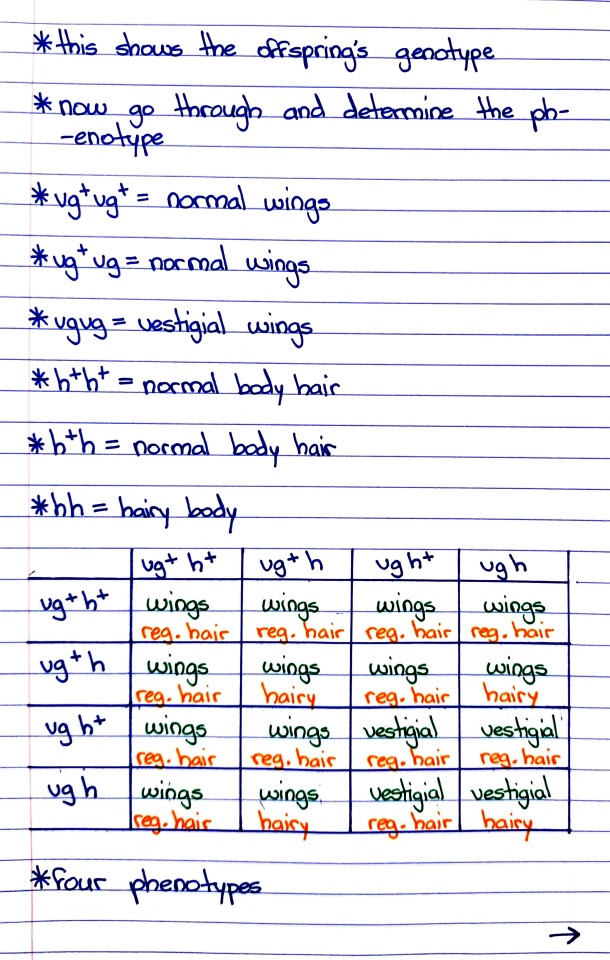 *this shows the offspring's genotype
*now go through and determine the ph-
-enotype
*vg⁺vg⁺ = normal wings
*vg⁺vg = normal wings
*vgvg = vestigial wings
*h⁺h⁺ = normal body hair
*h⁺h = normal body hair
*hh = hairy body
vg⁺ h⁺ vg⁺ h vg h⁺ vg h
vg⁺h⁺ wings wings wings wings
reg. hair reg. hair reg. hair reg. hair
vg⁺h wings wings wings wings
reg. hair hairy reg. hair hairy
vg h⁺ wings wings vestigial vestigial
reg. hair reg. hair reg. hair reg. hair
vg h wings wings vestigial vestigial
reg. hair hairy reg. hair hairy
*four phenotypes
→